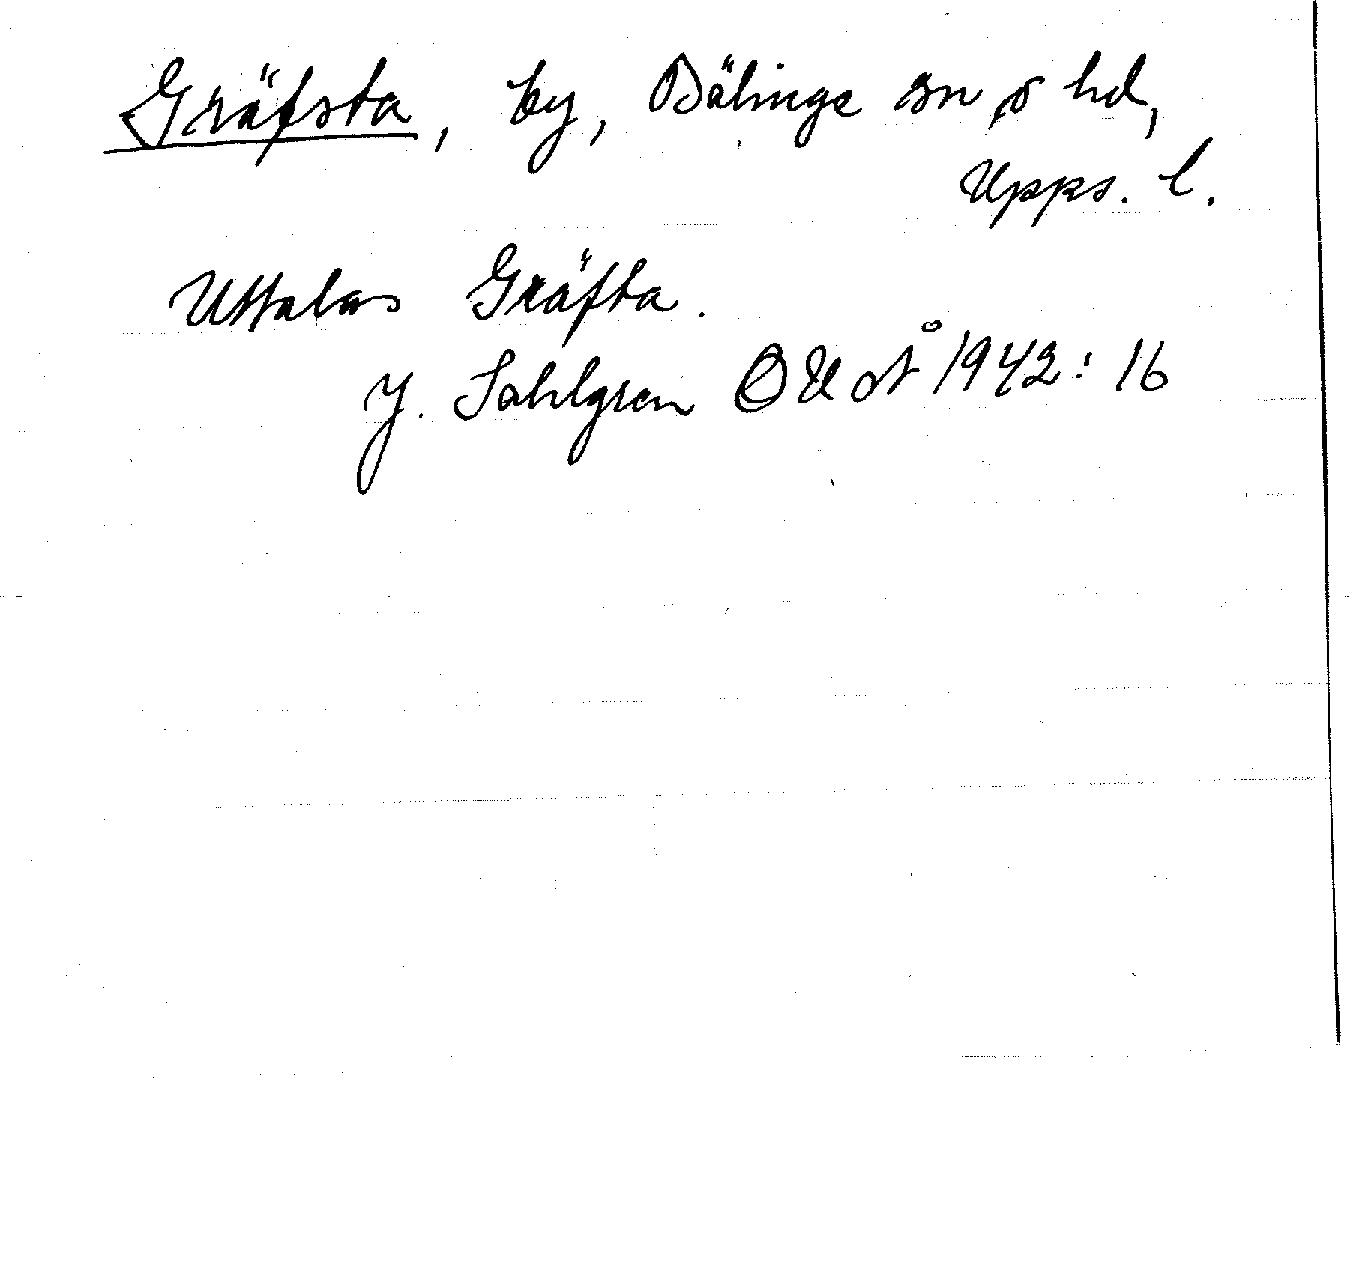 Gräfsta, by, Bälinge sn o hd,
Upps. l.
Uttalas Gräfta.
J. Sahlgren OUoÅ 1942: 16